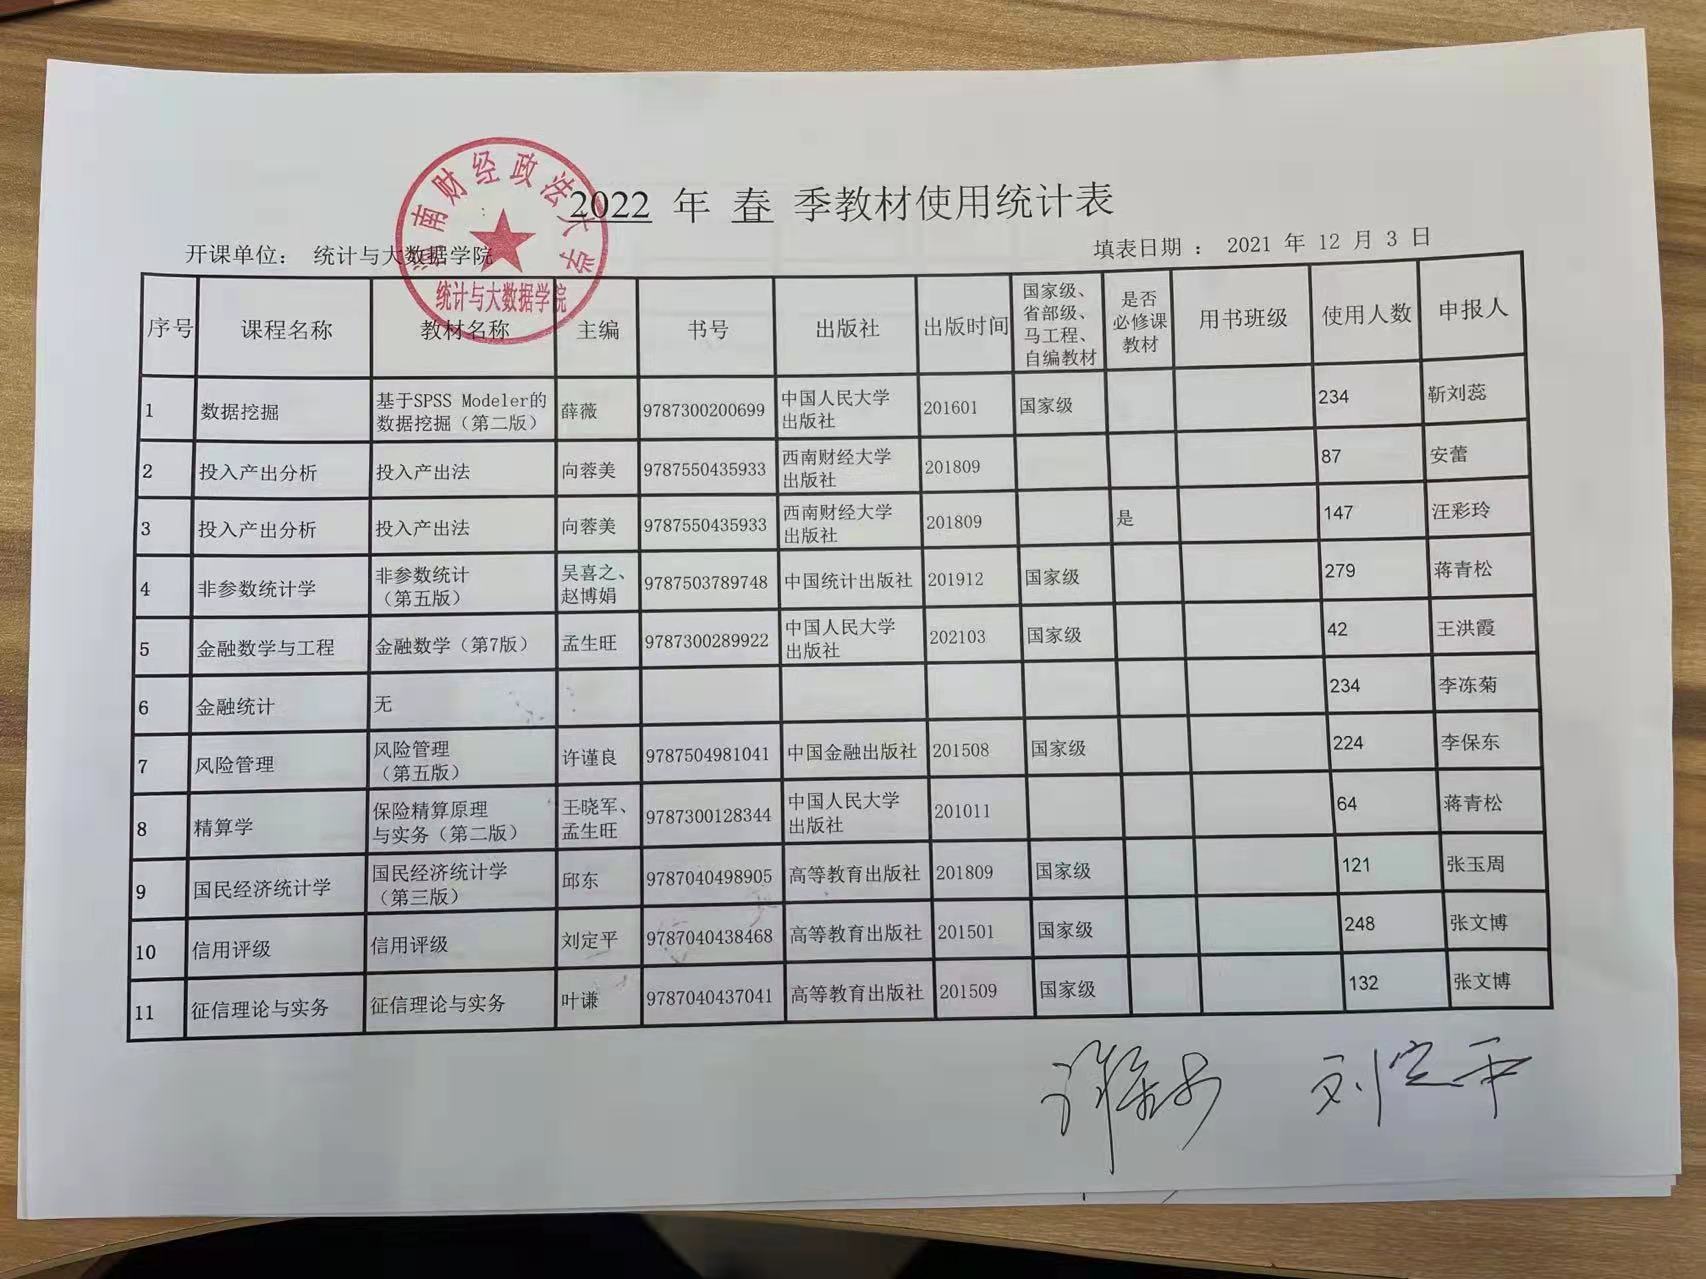 河南财经政法大学
统计与大数据学院
2022 年 春 季教材使用统计表
开课单位： 统计与大数据学院 填表日期 ： 2021 年 12 月 3 日
序号 课程名称 教材名称 主编 书号 出版社 出版时间 国家级、省部级、马工程、自编教材 是否必修课教材 用书班级 使用人数 申报人
1 数据挖掘 基于SPSS Modeler的数据挖掘（第二版） 薛薇 9787300200699 中国人民大学出版社 201601 国家级 234 靳刘蕊
2 投入产出分析 投入产出法 向蓉美 9787550435933 西南财经大学出版社 201809 87 安蕾
3 投入产出分析 投入产出法 向蓉美 9787550435933 西南财经大学出版社 201809 是 147 汪彩玲
4 非参数统计学 非参数统计（第五版） 吴喜之、赵博娟 9787503789748 中国统计出版社 201912 国家级 279 蒋青松
5 金融数学与工程 金融数学（第7版） 孟生旺 9787300289922 中国人民大学出版社 202103 国家级 42 王洪霞
6 金融统计 无 234 李冻菊
7 风险管理 风险管理（第五版） 许谨良 9787504981041 中国金融出版社 201508 国家级 224 李保东
8 精算学 保险精算原理与实务（第二版） 王晓军、孟生旺 9787300128344 中国人民大学出版社 201011 64 蒋青松
9 国民经济统计学 国民经济统计学（第三版） 邱东 9787040498905 高等教育出版社 201809 国家级 121 张玉周
10 信用评级 信用评级 刘定平 9787040438468 高等教育出版社 201501 国家级 248 张文博
11 征信理论与实务 征信理论与实务 叶谦 9787040437041 高等教育出版社 201509 国家级 132 张文博
刘定平